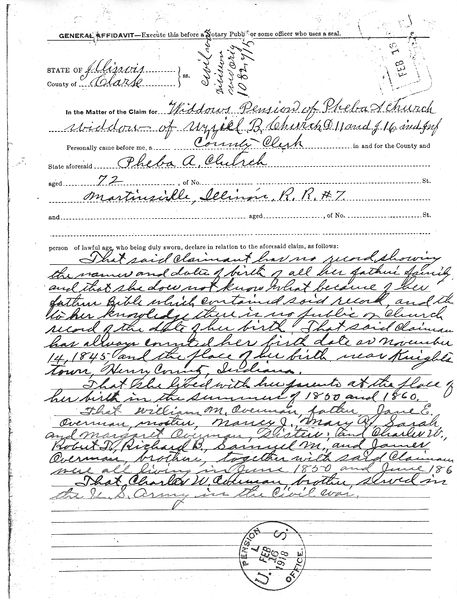 GENERAL AFFIDAVIT—Execute this before a Notary Public or some officer who uses a seal.
civil war
division
1082715
FEB 15
STATE OF Illinois
County of Clark
ss:
In the Matter of the Claim for Widows Pension of Pheba A Church
widow of B. Church D 11 and J 16 Ind Inf
Personally came before me, a County Clerk in and for the County and
State aforesaid Pheba A. Church
aged 72 of No. St.
Martinsville, Illinois, R. R. #7
and aged of No. St.
person of lawful age, who being duly sworn, declare in relation to the aforesaid claim, as follows:
That said claimant has no record showing
the names and dates of birth of all her fathers family
and that she does not know what became of her
fathers Bible which contained said record, and th
to her knowledge there is no public or Church
record of the date of her birth. That said Claiman
has always counted her birth date as November
14, 1845 and the place of her birth near Knights
town, Henry County, Indiana.
That She lived with her parents at the place of
her birth in the summer of 1850 and 1860.
That William M. Overman, father, Jane E.
Overman, mother, Nancy J. Mary A. Sarah
and Margaret Overman, Sisters; and Charles W.
Robert D, Richard R, Samuel M, and James
Overman, brothers, together with said Claiman
were all living in June 1850 and June 186
That Charles W. Overman, brother, served in
the U. S. Army in the Civil War.
PENSION OFFICE.
L
FEB
16
1918
U. S.